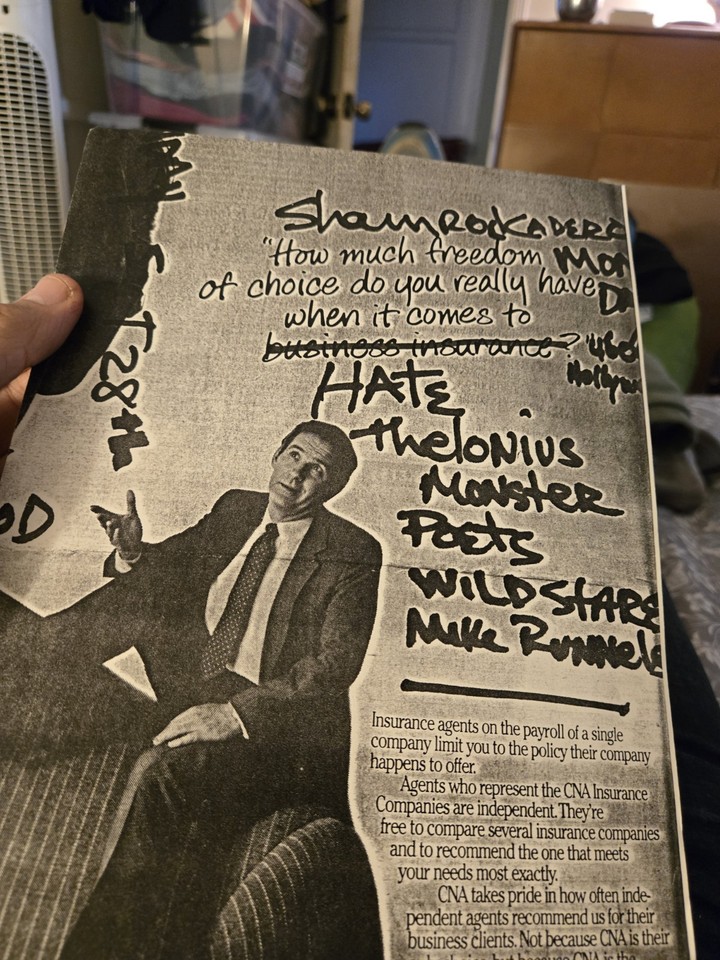 ShamROCKADERO
"How much freedom MON
of choice do you really have
when it comes to
business insurance?"
Hollyw
HATE
T 28th
TheloNIUS
MoNsteR
PoEts
OD
WILD StARES
Mike RuNNels
Insurance agents on the payroll of a single
company limit you to the policy their company
happens to offer.
Agents who represent the CNA Insurance
Companies are independent. They're
free to compare several insurance companies
and to recommend the one that meets
your needs most exactly.
CNA takes pride in how often inde-
pendent agents recommend us for their
business clients. Not because CNA is their